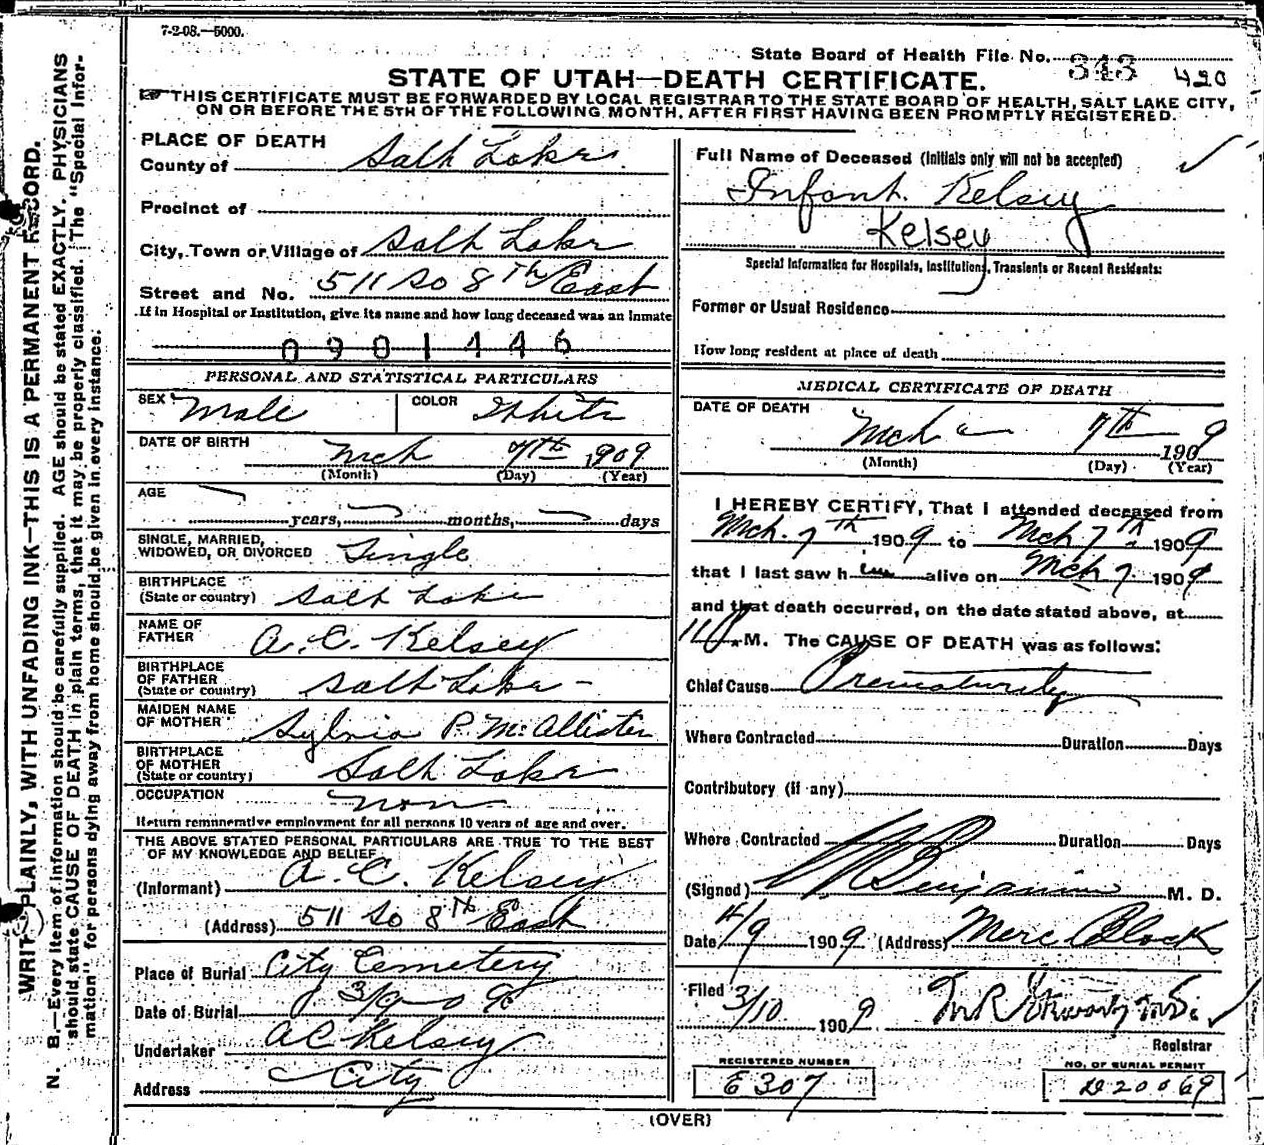 7-2-08.—5000.
State Board of Health File No. 343 420
STATE OF UTAH—DEATH CERTIFICATE.
THIS CERTIFICATE MUST BE FORWARDED BY LOCAL REGISTRAR TO THE STATE BOARD OF HEALTH, SALT LAKE CITY,
ON OR BEFORE THE 5TH OF THE FOLLOWING MONTH, AFTER FIRST HAVING BEEN PROMPTLY REGISTERED.
WRITE PLAINLY, WITH UNFADING INK—THIS IS A PERMANENT RECORD.
N. B.—Every item of information should be carefully supplied. AGE should be stated EXACTLY. PHYSICIANS
should state CAUSE OF DEATH in plain terms, that it may be properly classified. The "Special Infor-
mation" for persons dying away from home should be given in every instance.
PLACE OF DEATH
County of Salt Lake
Precinct of
City, Town or Village of Salt Lake
Street and No. 511 So 8th East
If in Hospital or Institution, give its name and how long deceased was an inmate
0901446
PERSONAL AND STATISTICAL PARTICULARS
SEX Male COLOR White
DATE OF BIRTH Mch 7th 1909
(Month) (Day) (Year)
AGE
years, months, days
SINGLE, MARRIED,
WIDOWED, OR DIVORCED Single
BIRTHPLACE
(State or country) Salt Lake
NAME OF
FATHER A. C. Kelsey
BIRTHPLACE
OF FATHER
(State or country) Salt Lake
MAIDEN NAME
OF MOTHER Sylvia P. McAllister
BIRTHPLACE
OF MOTHER
(State or country) Salt Lake
OCCUPATION non
Return remunerative employment for all persons 10 years of age and over.
THE ABOVE STATED PERSONAL PARTICULARS ARE TRUE TO THE BEST
OF MY KNOWLEDGE AND BELIEF
(Informant) A. C. Kelsey
(Address) 511 So 8th East
Place of Burial City Cemetery
Date of Burial 3/9-09
Undertaker A C Kelsey
Address City
Full Name of Deceased (Initials only will not be accepted)
Infant Kelsey
Kelsey
Special Information for Hospitals, Institutions, Transients or Recent Residents:
Former or Usual Residence
How long resident at place of death
MEDICAL CERTIFICATE OF DEATH
DATE OF DEATH
Mch 7th 1909
(Month) (Day) (Year)
I HEREBY CERTIFY, That I attended deceased from
Mch. 7th 1909 to Mch 7th 1909
that I last saw h im alive on Mch 7 1909
and that death occurred, on the date stated above, at
11 P.M. The CAUSE OF DEATH was as follows:
Chief Cause Prematurity
Where Contracted Duration Days
Contributory (if any)
Where Contracted Duration Days
(Signed) Benjamin M. D.
Date 4/9 1909 (Address) Merc Block
Filed 3/10 1909
Registrar
REGISTERED NUMBER
E 307
NO. OF BURIAL PERMIT
D20069
(OVER)